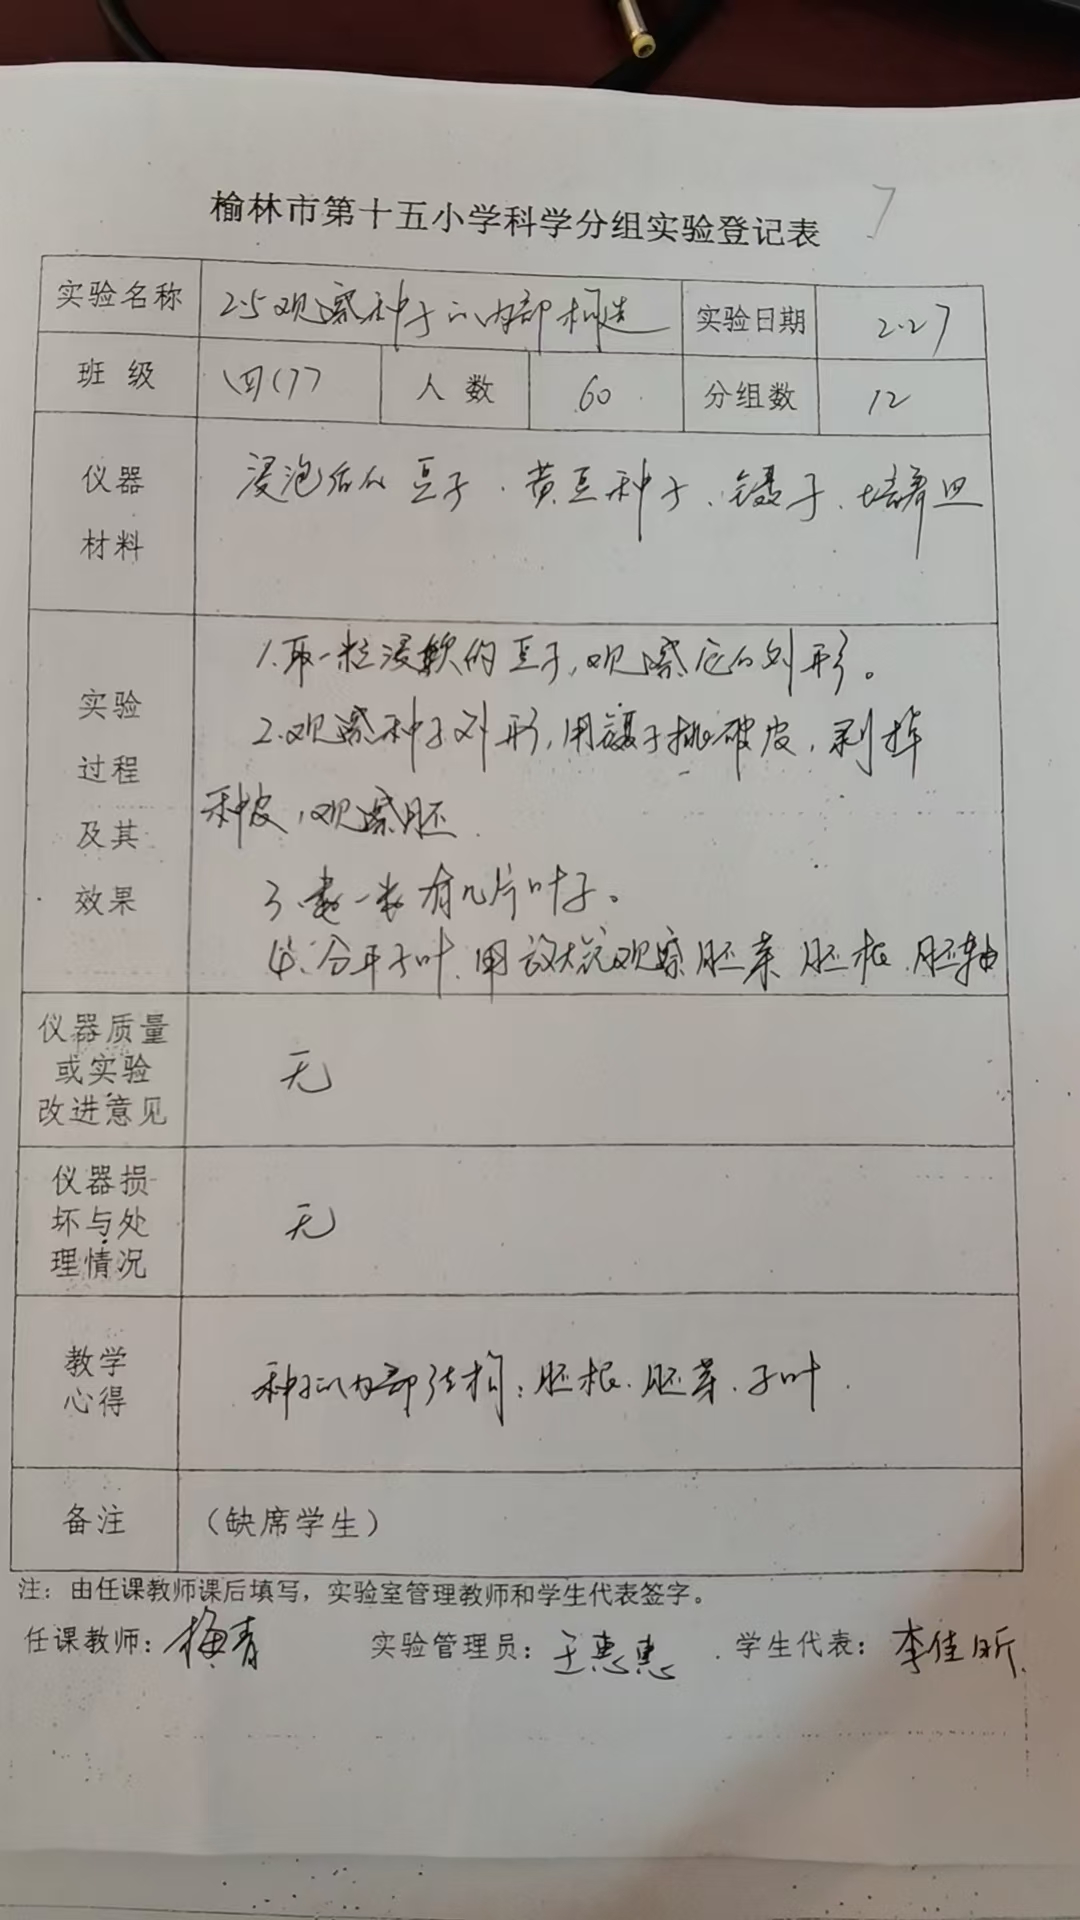 榆林市第十五小学科学分组实验登记表 7
实验名称 2.5观察种子的内部构造 实验日期 2.27
班级 四(7) 人数 60 分组数 12
仪器材料 浸泡后的豆子、黄豆种子、镊子、培养皿
实验过程及其效果
1.取一粒浸软的豆子,观察它的外形。
2.观察种子外形,用镊子挑破皮,剥掉
种皮,观察胚.
3.数一数有几片叶子。
4.分开子叶.用放大镜观察胚芽.胚根.胚轴
仪器质量
或实验
改进意见
无
仪器损
坏与处
理情况
无
教学
心得
种子的内部结构:胚根.胚芽.子叶.
备注 (缺席学生)
注:由任课教师课后填写,实验室管理教师和学生代表签字。
任课教师:梅青 实验管理员:王惠惠 学生代表:李佳昕